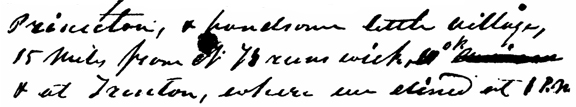 Princeton, a handsome little village,
15 miles from N Brunswick,
& at Trenton, where we dined at 1 P.M